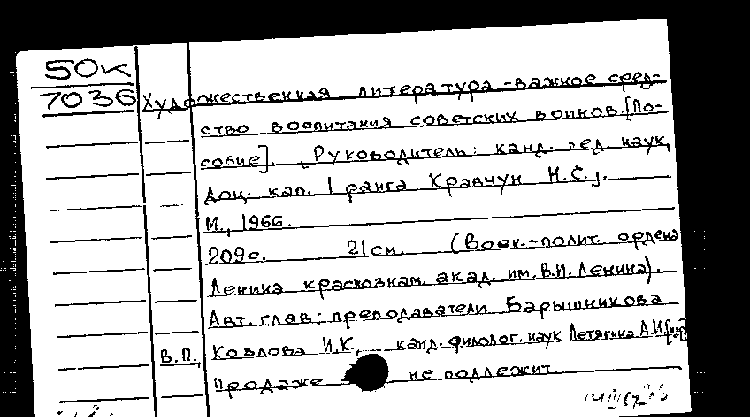 50к
7036 Художественная литература - важное сред-
ство воспитания советских воинов. [По-
собие]. Руководитель: канд. пед. наук,
доц. кап. 1 ранга Кравчун Н.С.
М., 1966.
209с. 21см. (Воен.-полит. ордена
Ленина краснознам. акад. им. В.И. Ленина).
Авт. глав: преподаватели Барышникова
В.П., Козлова И.К., канд. филолог. наук Петягина А.И.
Продаже не подлежит